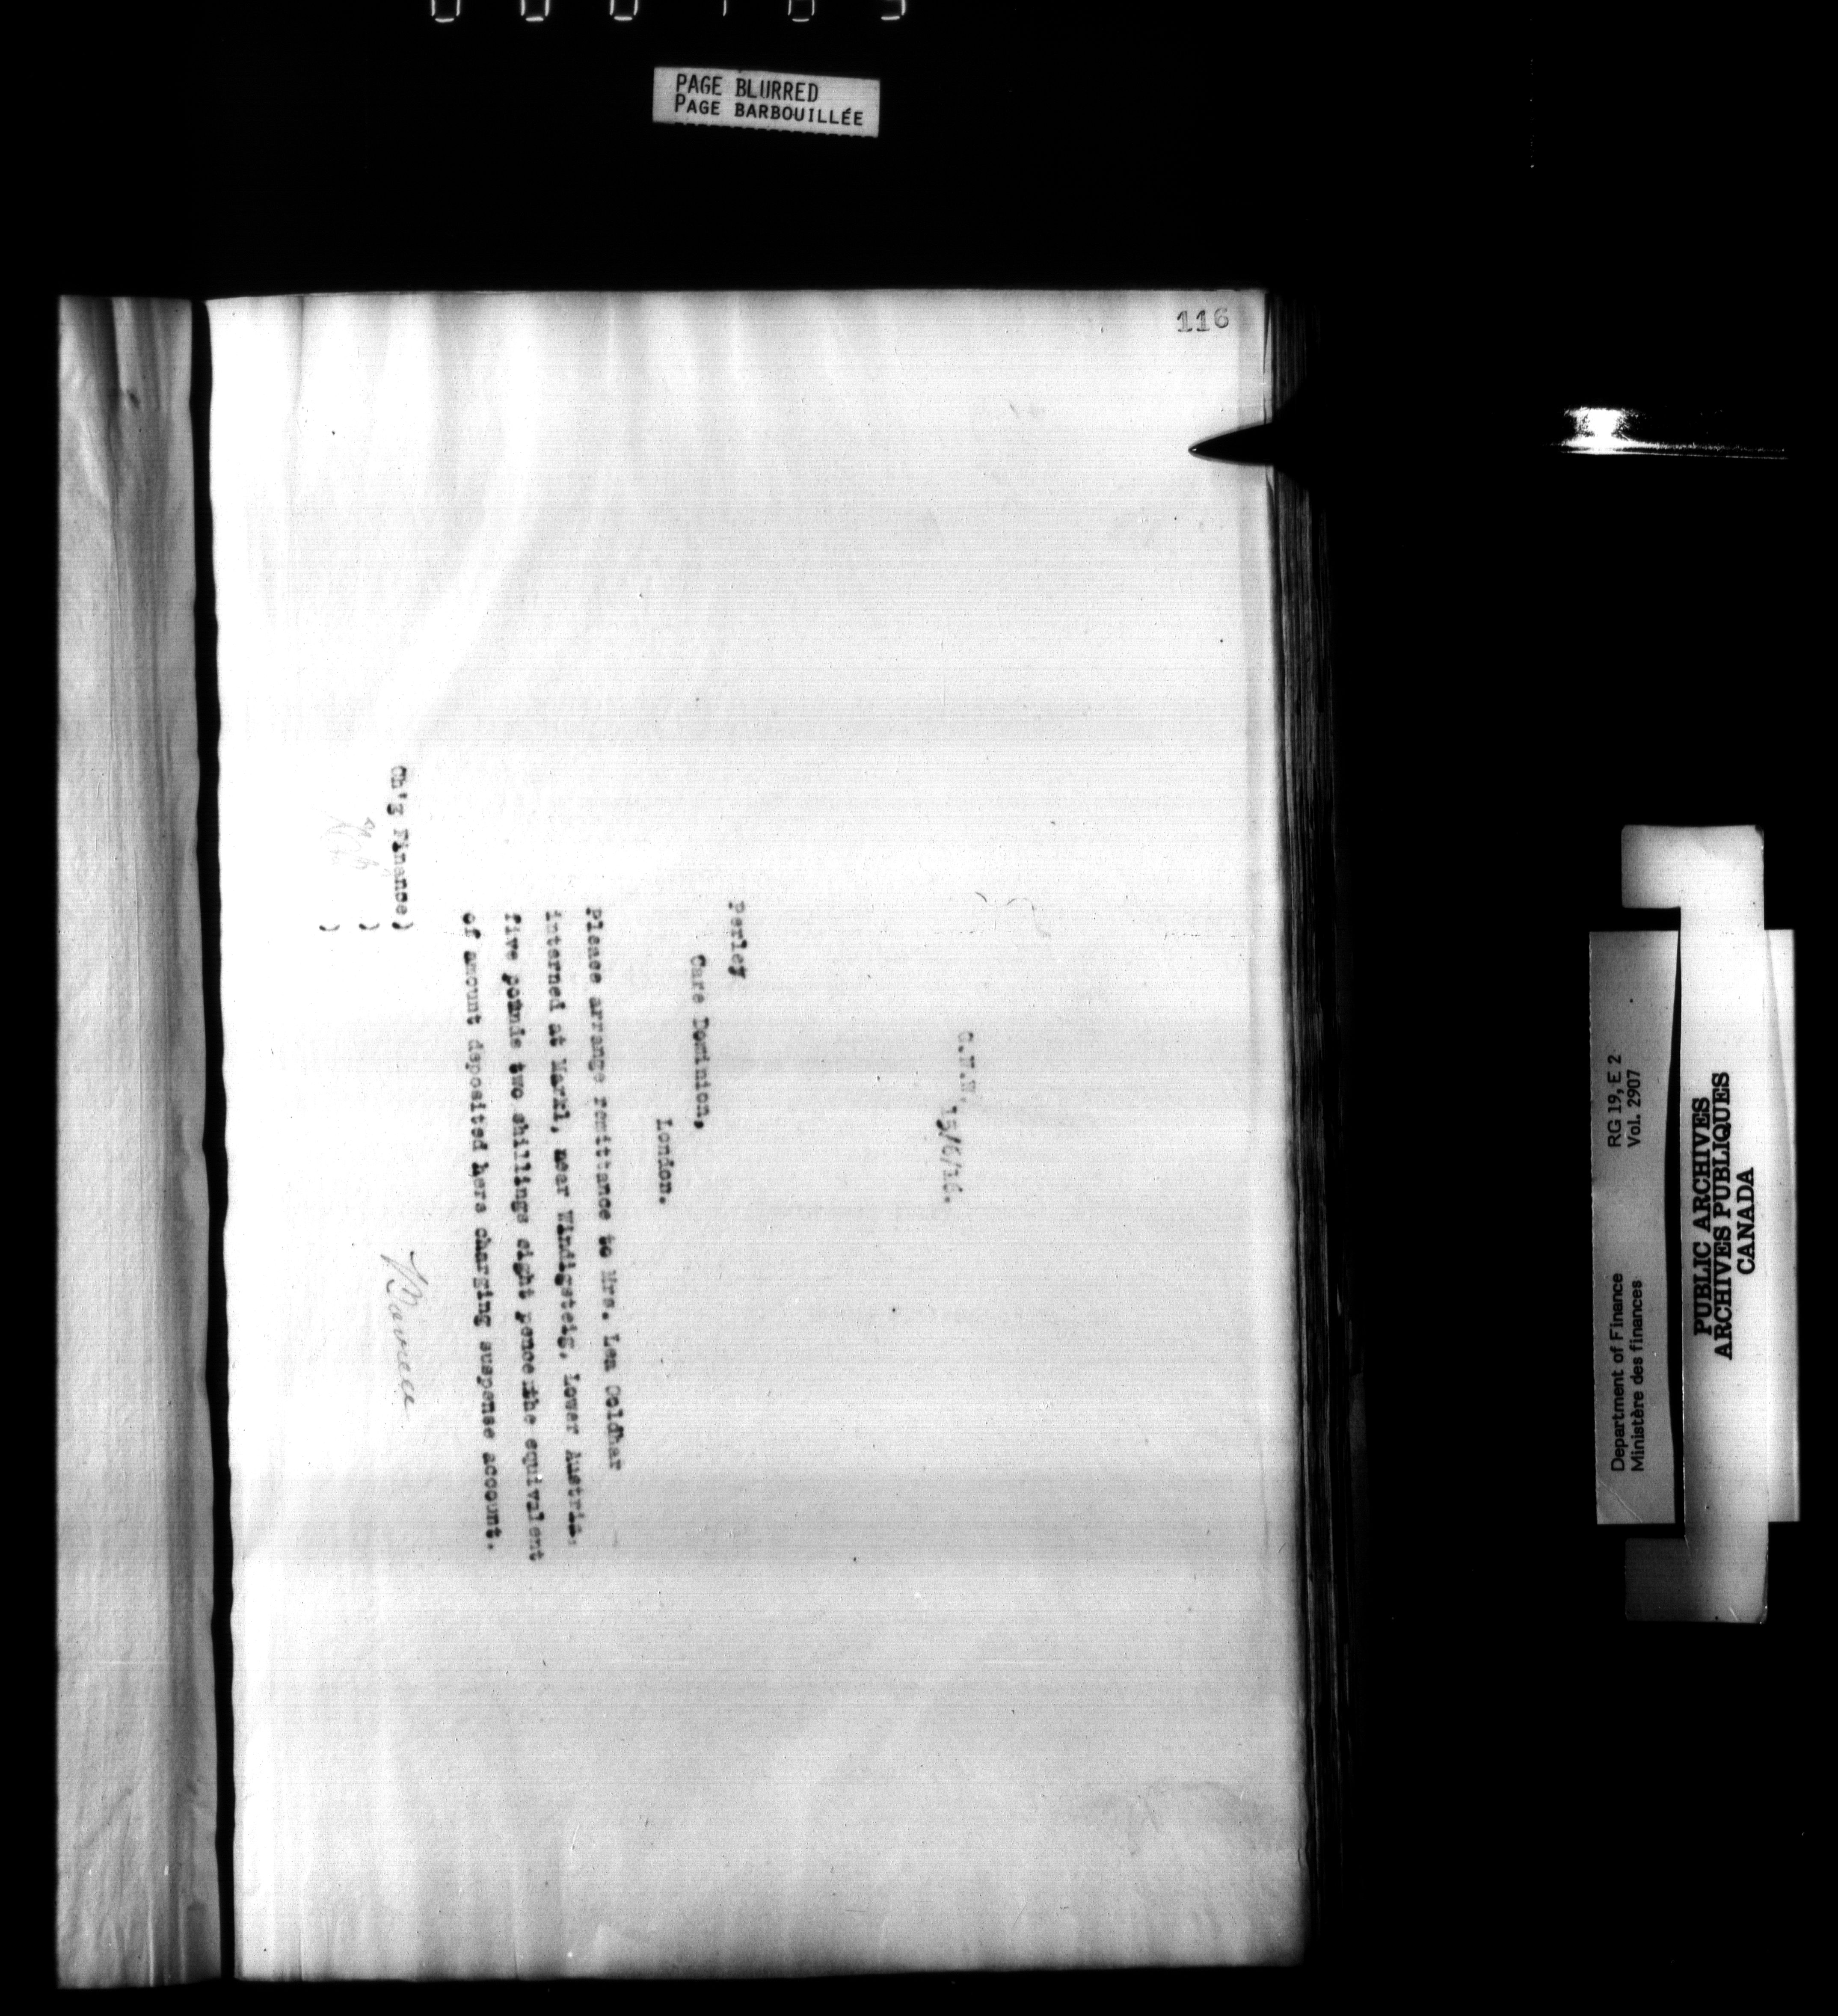 PAGE BLURRED
PAGE BARBOUILLÉE
116
15/6/16.
Perley
Care Dominion,
London.
Please arrange remittance to Mrs. Lea Goldhar
interned at Markl, near Windigsteig, Lower Austria,
five pounds two shillings eight pence the equivalent
of amount deposited here charging suspense account.
Ch'g Finance)
)
)
RG 19, E 2
Vol. 2907
Department of Finance
Ministère des finances
PUBLIC ARCHIVES
ARCHIVES PUBLIQUES
CANADA